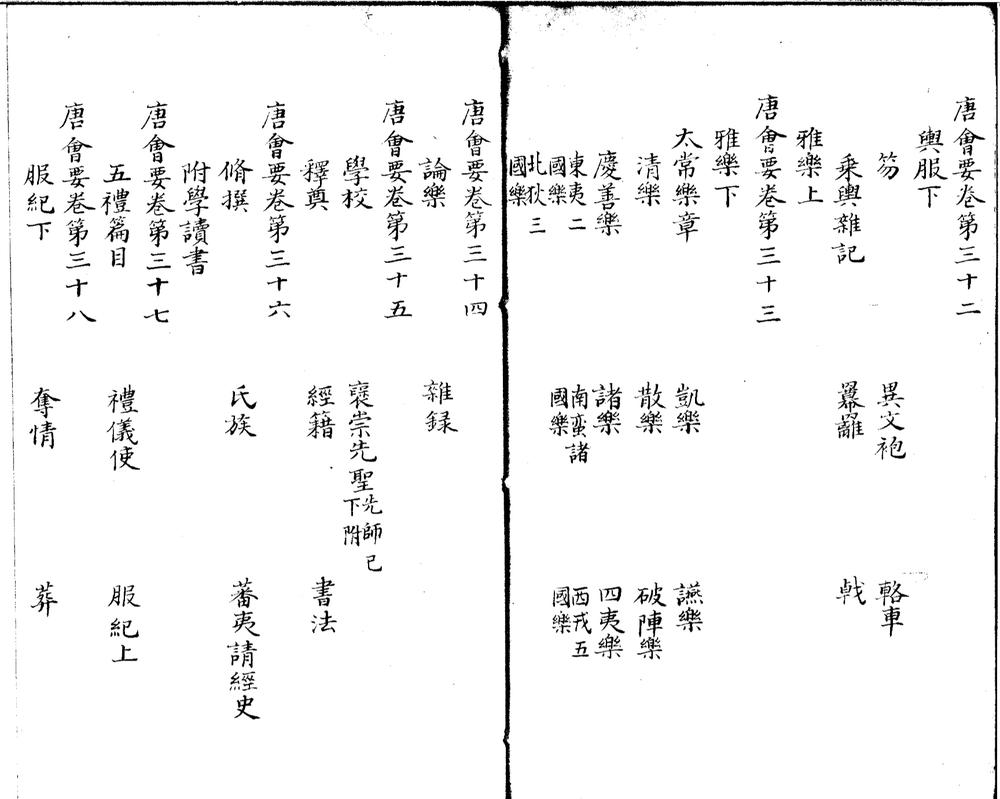 唐會要卷第三十二
輿服下
笏 異文袍 輅車
乗輿雜記 羃䍦 㦸
雅樂上
唐會要卷第三十三
雅樂下
太常樂章 凱樂 讌樂
清樂 散樂 破陣樂
慶善樂 諸樂 四夷樂
東夷二國樂 南蛮諸國樂 西戎五國樂
北狄三國樂
唐會要卷第三十四
論樂 雜録
唐會要卷第三十五
學校 襃崇先聖先師已下附
釋奠 經籍 書法
唐會要卷第三十六
脩撰 氏族 蕃夷請經史
附學讀書
唐會要卷第三十七
五禮篇目 禮儀使 服紀上
唐會要卷第三十八
服紀下 奪情 葬